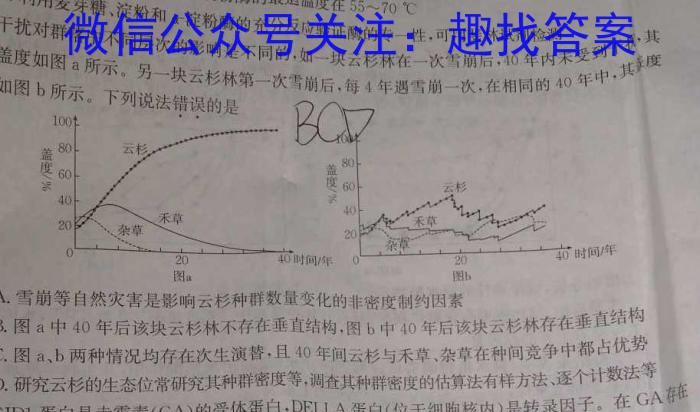 淀粉和
最适温度在55~70 ℃
微信公众号关注：趣找答案
干扰对群
影响是不同的,如一块云杉林在一次雪崩后,40年内未受到
其
盖度如图a所示。另一块云杉林第一次雪崩后,每4年遇雪崩一次,在相同的40年中,其盖度
如图b所示。下列说法错误的是
BCD
100
80
60
40
20
0
盖度/%
云杉
禾草
杂草
20
40
时间/年
图a
100
80
60
40
20
0
盖度/%
云杉
禾草
杂草
20
40
时间/年
图b
A. 雪崩等自然灾害是影响云杉种群数量变化的非密度制约因素
B. 图a中40年后该块云杉林不存在垂直结构,图b中40年后该块云杉林存在垂直结构
C. 图a、b两种情况均存在次生演替,且40年间云杉与禾草、杂草在种间竞争中都占优势
D. 研究云杉的生态位常研究其种群密度等,调查其种群密度的估算法有样方法、逐个计数法等
蛋白是赤霉素(GA)的受体蛋白,DELLA蛋白(位于细胞核内)是转录因子。在GA存在